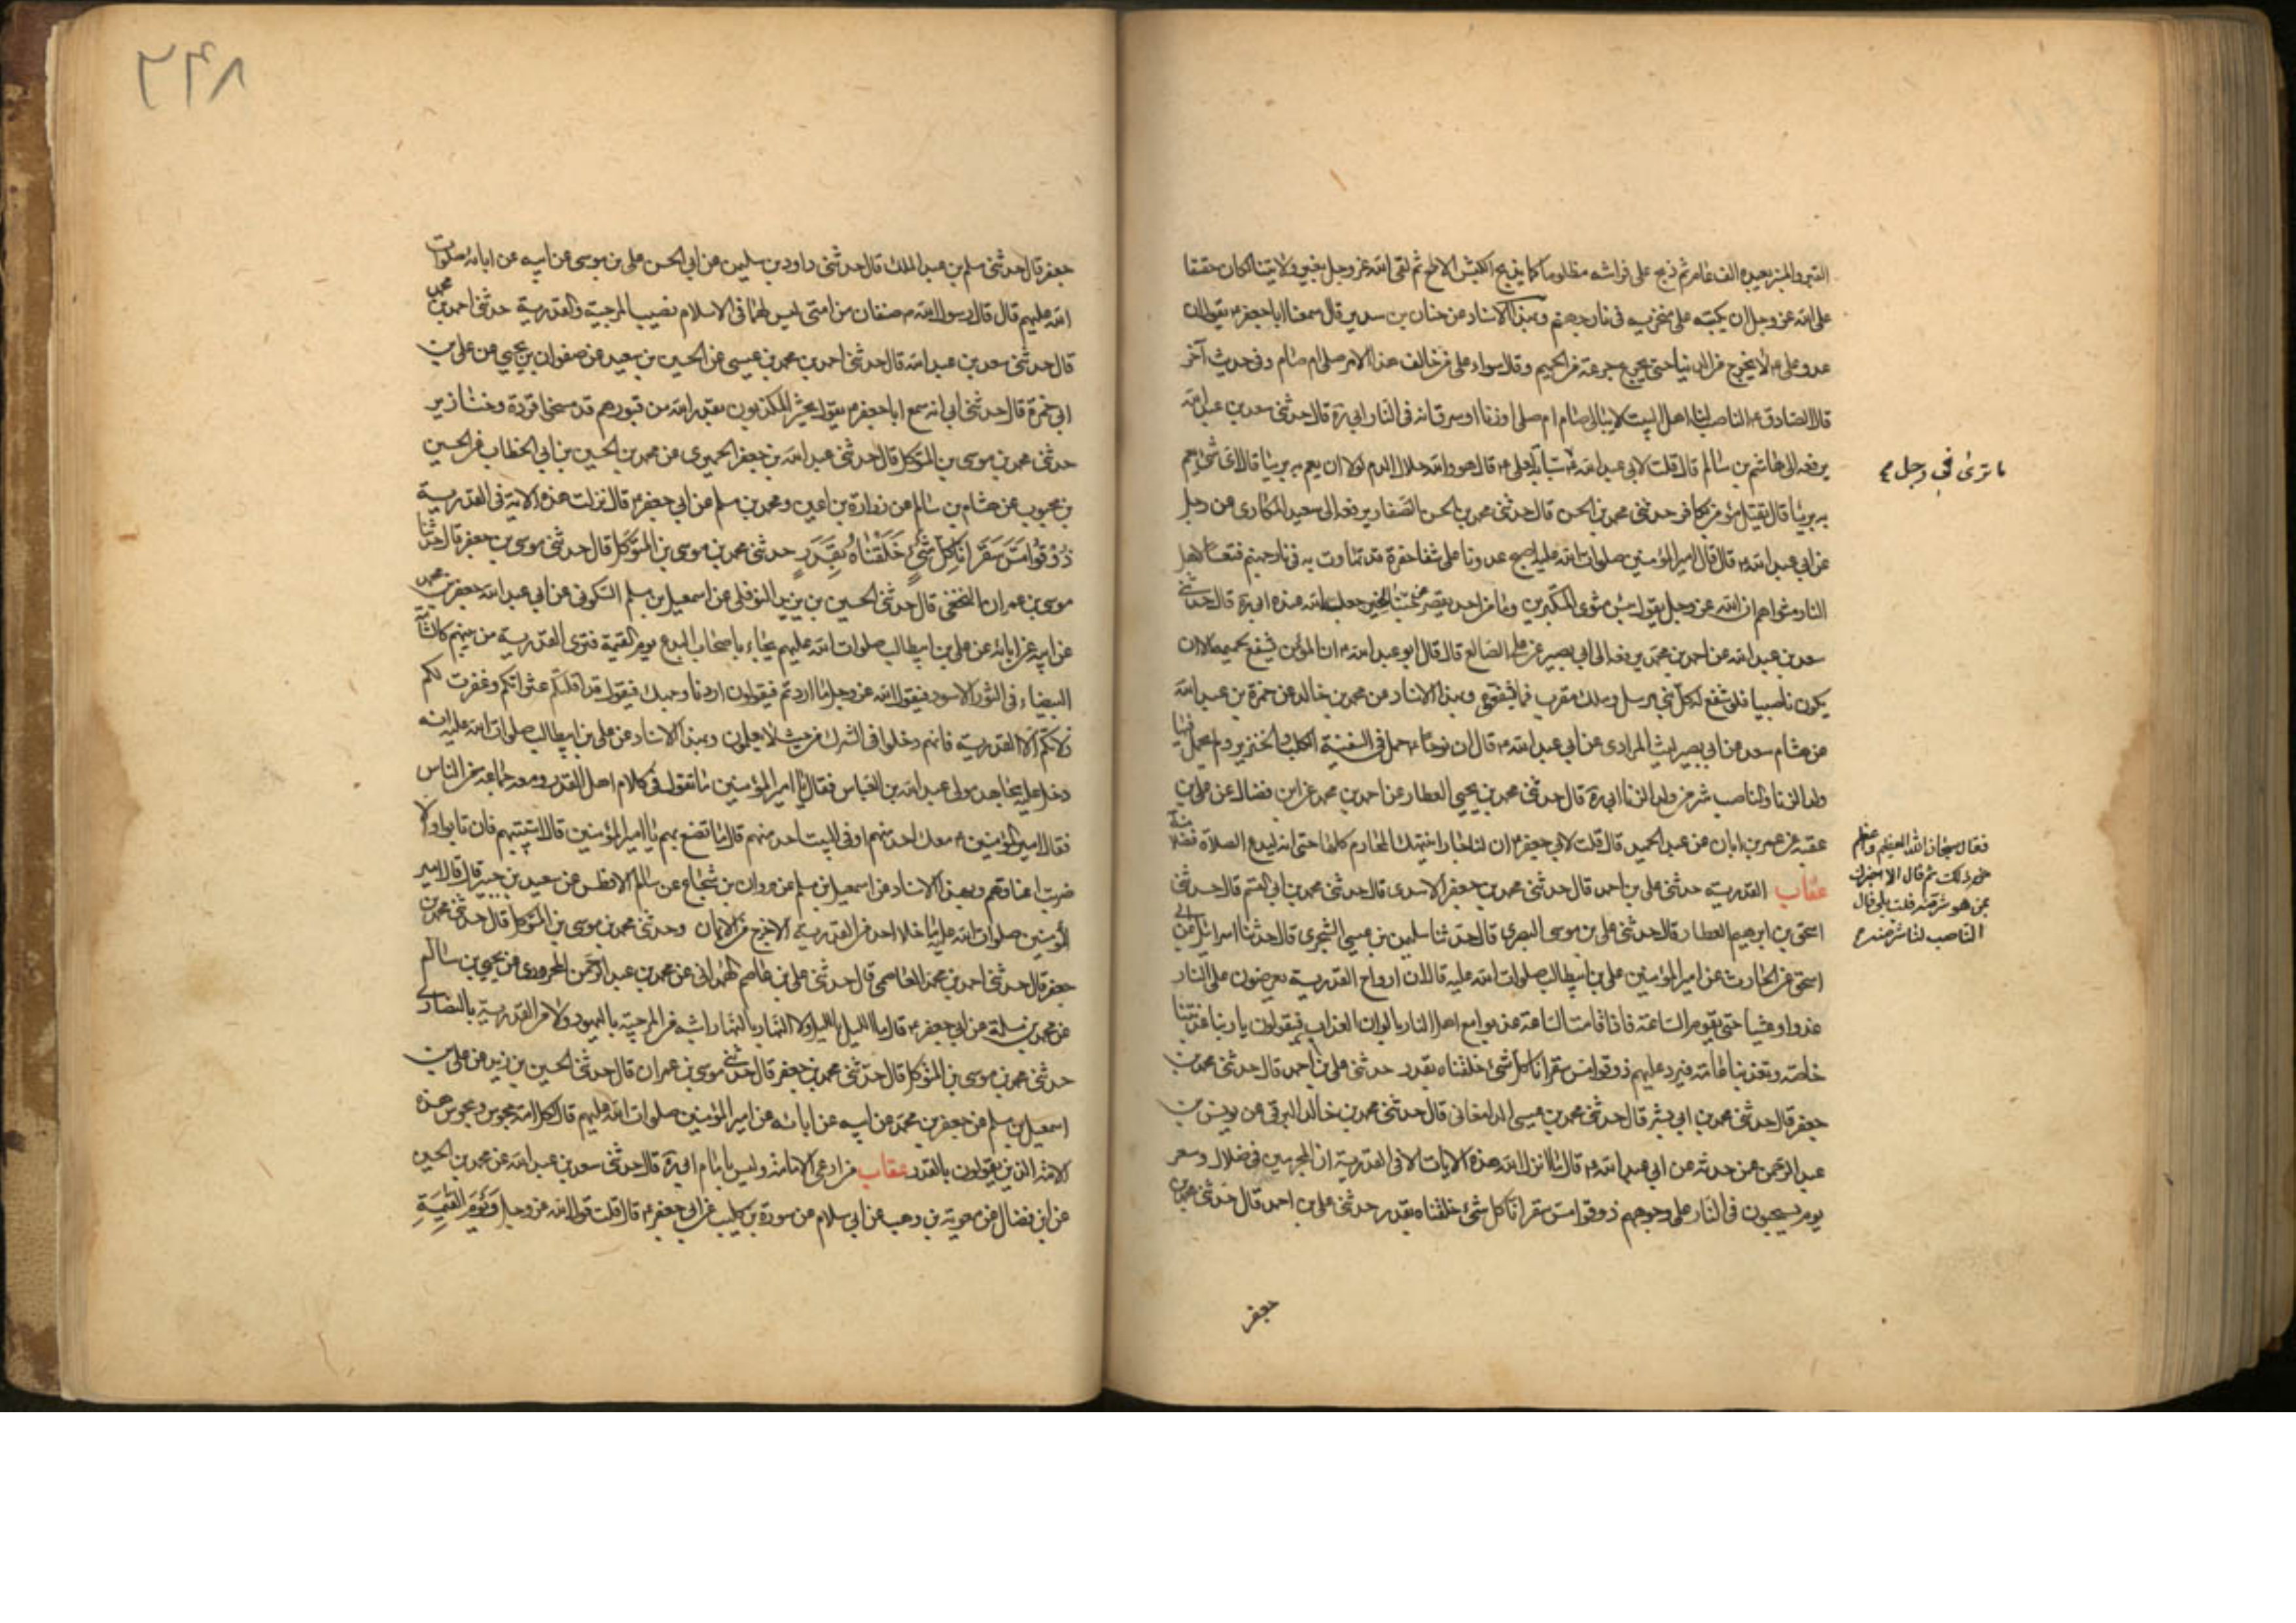 القبر والمنبر يعبده الف عام ثم ذبح على فراشه مظلوما كما يذبح الكبش الاملح ثم لقى الله عز وجل بغير ولايتنا لكان حقيقا
على الله عز وجل ان يكبه على منخريه في نار جهنم وبهذا الاسناد عن حنان بن سدير قال سمعنا ابا جعفر ع يقول ان
عدو علي ع لا يخرج من الدنيا حتى يجرع جرعة من الحميم وقال سواء على من خالف هذا الامر صلى ام صام وفي حديث آخر
قال الصادق ع الناصب لنا اهل البيت لا يبالى صام ام صلى او زنا او سرق انه في النار ابي ره قال حدثنى سعد بن عبد الله
يرفعه الى هشام بن سالم قال قلت لابي عبد الله ع سبابة لعلي ع قال هو والله حلال الدم لولا ان يعم به بريئا قال لاى شئ يعم
ما ترى في رجل
به بريئا قال يقتل مؤمن بكافر حدثنى محمد بن الحسن قال حدثنى محمد بن الحسن الصفار يرفعه الى سعيد المكارى عن رجل
عن ابي عبد الله ع قال قال امير المؤمنين صلوات الله عليه اصبح عدونا على شفا حفرة قد تهاوت به في نار جهنم فتعسا لاهل
النار مثواهم ان الله عز وجل يقول بئس مثوى المتكبرين وما من احد يقصر عن حبنا لخير جعله الله عنده ابي ره قال حدثنى
سعد بن عبد الله عن احمد بن محمد يرفعه الى ابي بصير عن على الصائغ قال قال ابو عبد الله ع ان المؤمن ليشفع لحميمه الا ان
يكون ناصبيا فلو شفع له كل نبي مرسل وملك مقرب فما شفعوا وبهذا الاسناد عن محمد بن خالد عن حمزة بن عبد الله
عن هشام سعد عن ابي بصير ليث المرادى عن ابي عبد الله ع قال ان نوحا ع حمل في السفينة الكلب والخنزير ولم يحمل فيها
ولد الزنا والناصب شر من ولد الزنا ابي ره قال حدثنى محمد بن يحيى العطار عن احمد بن محمد عن ابن فضال عن على بن
عقبة عن عمر بن ابان عن عبد الحميد قال قلت لابي جعفر ع ان لنا جارا ينتهك المحارم كلها حتى انه ليدع الصلاة فضلا
فقال سبحان الله العظيم واعظم
من ذلك ثم قال الا اخبرك
بمن هو شر منه قلت بلى قال
الناصب لنا شر منه
عقاب القدرية حدثنى على بن احمد قال حدثنى محمد بن جعفر الاسدى قال حدثنى محمد بن ابي القسم قال حدثنى
اسحق بن ابرهيم العطار قال حدثنى على بن موسى البصرى قال حدثنا سليمن بن عيسى الشجرى قال حدثنا اسرائيل عن ابي
اسحق عن الحارث عن امير المؤمنين على بن ابيطالب صلوات الله عليه قال ان ارواح القدرية يعرضون على النار
غدوا وعشيا حتى تقوم الساعة فاذا قامت الساعة عذبوا مع اهل النار بالوان العذاب فيقولون يا ربنا عذبتنا
خاصة وتعذبنا عامة فيرد عليهم ذوقوا مس سقر انا كل شئ خلقناه بقدر حدثنى على بن احمد قال حدثنى محمد بن
جعفر قال حدثنى محمد بن ابي بشر قال حدثنى محمد بن عيسى الدامغانى قال حدثنى محمد بن خالد البرقى عن يونس بن
عبد الرحمن عمن حدثه عن ابي عبد الله ع قال ما انزل الله هذه الايات الا في القدرية ان المجرمين في ضلال وسعر
يوم يسحبون في النار على وجوههم ذوقوا مس سقر انا كل شئ خلقناه بقدر حدثنى على بن احمد قال حدثنى محمد بن
جعفر
٢٩٨
جعفر قال حدثنى مسلم بن عبد الملك قال حدثنى داود بن سليمن عن ابي الحسن على بن موسى عن ابيه عن ابائه صلوات
الله عليهم قال قال رسول الله ص صنفان من امتى ليس لهما في الاسلام نصيب المرجئة والقدرية حدثنى احمد بن محمد
قال حدثنى سعد بن عبد الله قال حدثنى احمد بن محمد بن عيسى عن الحسين بن سعيد عن صفوان بن يحيى عن على بن
ابي حمزة قال حدثنى ابي انه سمع ابا جعفر ع يقول يحشر المكذبون بقدر الله من قبورهم قد مسخوا قردة وخنازير
حدثنى محمد بن موسى بن المتوكل قال حدثنى عبد الله بن جعفر الحميرى عن محمد بن الحسين بن ابي الخطاب عن الحسين
بن محبوب عن هشام بن سالم عن زرارة بن اعين ومحمد بن مسلم عن ابي جعفر ع قال نزلت هذه الاية في القدرية
ذُوْقُوا مَسَّ سَقَرَ اِنَّا كُلَّ شَئٍ خَلَقْنَاهُ بِقَدَرٍ حدثنى محمد بن موسى بن المتوكل قال حدثنى موسى بن جعفر قال حدثنا
موسى بن عمران النخعى قال حدثنى الحسين بن يزيد النوفلى عن اسمعيل بن مسلم السكونى عن ابي عبد الله جعفر بن محمد
عن ابيه عن ابائه عن على بن ابيطالب صلوات الله عليهم يجاء باصحاب البدع يوم القيمة فترى القدرية من بينهم كالشامة
البيضاء في الثور الاسود فيقول الله عز وجل ما اردتم فيقولون اردنا وجهك فيقول قد اقلتكم عثراتكم وغفرت لكم
زلاتكم الا القدرية فانهم دخلوا في الشرك من حيث لا يعلمون وبهذا الاسناد عن على بن ابيطالب صلوات الله عليه انه
دخل عليه مجاهد مولى عبد الله بن العباس فقال يا امير المؤمنين ما تقول في كلام اهل القدر ومعه جماعة من الناس
فقال امير المؤمنين ع معك احد منهم او في البيت احد منهم قال ما تصنع بهم يا امير المؤمنين قال استتيبهم فان تابوا والا
ضربت اعناقهم وبهذا الاسناد عن اسمعيل بن مسلم عن مروان بن شجاع عن سالم الافطس عن سعيد بن جبير قال قال امير
المؤمنين صلوات الله عليه ما غلا احد من القدرية الا خرج من الايمان وحدثنى محمد بن موسى بن المتوكل قال حدثنى محمد بن
جعفر قال حدثنى احمد بن محمد العاصمى قال حدثنى على بن عاصم الهمدانى عن محمد بن عبد الرحمن المحرورى عن يحيى بن سالم
عن محمد بن سلمة عن ابي جعفر ع قال ما الليل بالليل ولا النهار بالنهار اشبه من المرجئة باليهود ولا من القدرية بالنصارى
حدثنى محمد بن موسى بن المتوكل قال حدثنى محمد بن جعفر قال حدثنى موسى بن عمران قال حدثنى الحسين بن يزيد عن على بن
اسمعيل بن مسلم عن جعفر بن محمد عن ابيه عن ابائه عن امير المؤمنين صلوات الله عليهم قال لكل امة مجوس ومجوس هذه
الامة الذين يقولون بالقدر عقاب من ادعى الامامة وليس بامام ابي ره قال حدثنى سعد بن عبد الله عن محمد بن الحسين
عن ابن فضال عن معوية بن وهب عن ابي سلام عن سورة بن كليب عن ابي جعفر ع قال قلت قول الله عز وجل وَيَوْمَ الْقِيمَةِ